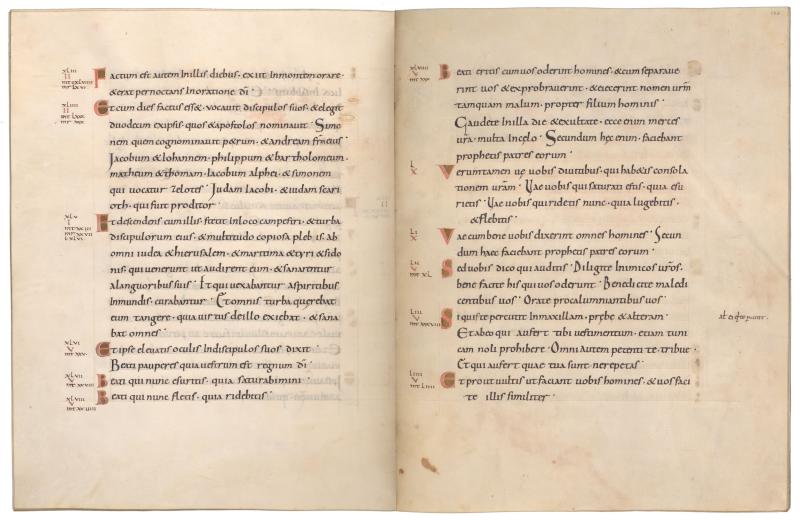 XLIII
II
Factum est autem Inillis diebus · exiit Inmontem orare ·
& erat pernoctans Inoratione dī ·
XLIIII
II
Et cum dies factus esse& · vocavit discipulos suos · & elegit
duodecim exipsis · quos & apostolos nominavit · Simo
nem quem cognominavit p&rum · & andream frēm eius
Jacobum & Iohannem · philippum & bartholomeum ·
matheum & thomam · Iacobum alphei · & simonem
qui vocatur zelotes · Iudam Iacobi · & iudam scari
oth · qui fuit proditor ·
XLV
I
Et descendens cumillis · stetit Inloco campestri · & turba
discipulorum eius · & multitudo copiosa plebis · ab
omni iudea & hierusalem · & maritima & tyri & sido
nis · qui venerunt ut audirent eum · & sanarentur
alanguoribus suis · Et qui vexabantur aspiritibus
Inmundis · curabantur · Et omnis turba querebat
eum tangere · quia virtus deillo exiebat · & sana
bat omnes ·
XLVI
V
mt xxv ·
Et ipse elevatis oculis Indiscipulos suos dixit ·
Beati pauperes quia vestrum est regnum dī ·
XLVII
V
Beati qui nunc esuritis · quia saturabimini ·
XLVIII
V
Beati qui nunc fletis · quia ridebitis ·
XLVIIII
V
Beati eritis cum vos oderint homines · & cum separave
rint vos & exprobraverint · & eiecerint nomen urm̄
tamquam malum · propter filium hominis ·
Gaudete Inilla die & exultate · ecce enim merces
ura · multa Incelo · Secundum hec enim · faciebant
prophetis patres eorum ·
L
X
Verumtamen ve vobis divitibus · qui hab&is consola
tionem uram̄ · Vae vobis qui saturati estis · quia esu
rietis · Vae vobis qui ridetis nunc · quia lugebitis ·
& flebitis ·
LI
X
Vae cum bene vobis dixerint omnes homines · Secun
dum haec faciebant prophetis patres eorum ·
LII
V
mt XL ·
Sed vobis dico qui auditis · Diligite Inimicos uros̄ ·
bene facite his qui vos oderunt · Benedicite maledi
centibus vos · Orate procalumniantibus vos ·
LIII
V
mt xxxviii
Si quis te percutit Inmaxillam · prebe & alteram ·
Et abeo qui aufert tibi vestimentum · etiam tuni
cam noli prohibere · Omni autem petenti te · tribue ·
Et qui aufert quae tua sunt · ne repetas ·
LIIII
V
mt LIIII
Et prout vultis ut faciant vobis homines · & vos faci
te illis similiter ·